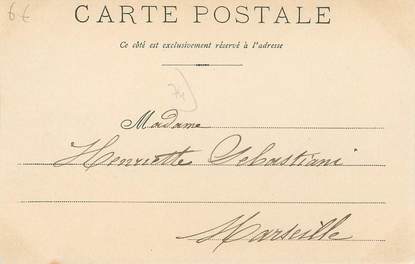 6€
CARTE POSTALE
Ce côté est exclusivement réservé à l'adresse
Madame
Henriette Sebastiani
Marseille